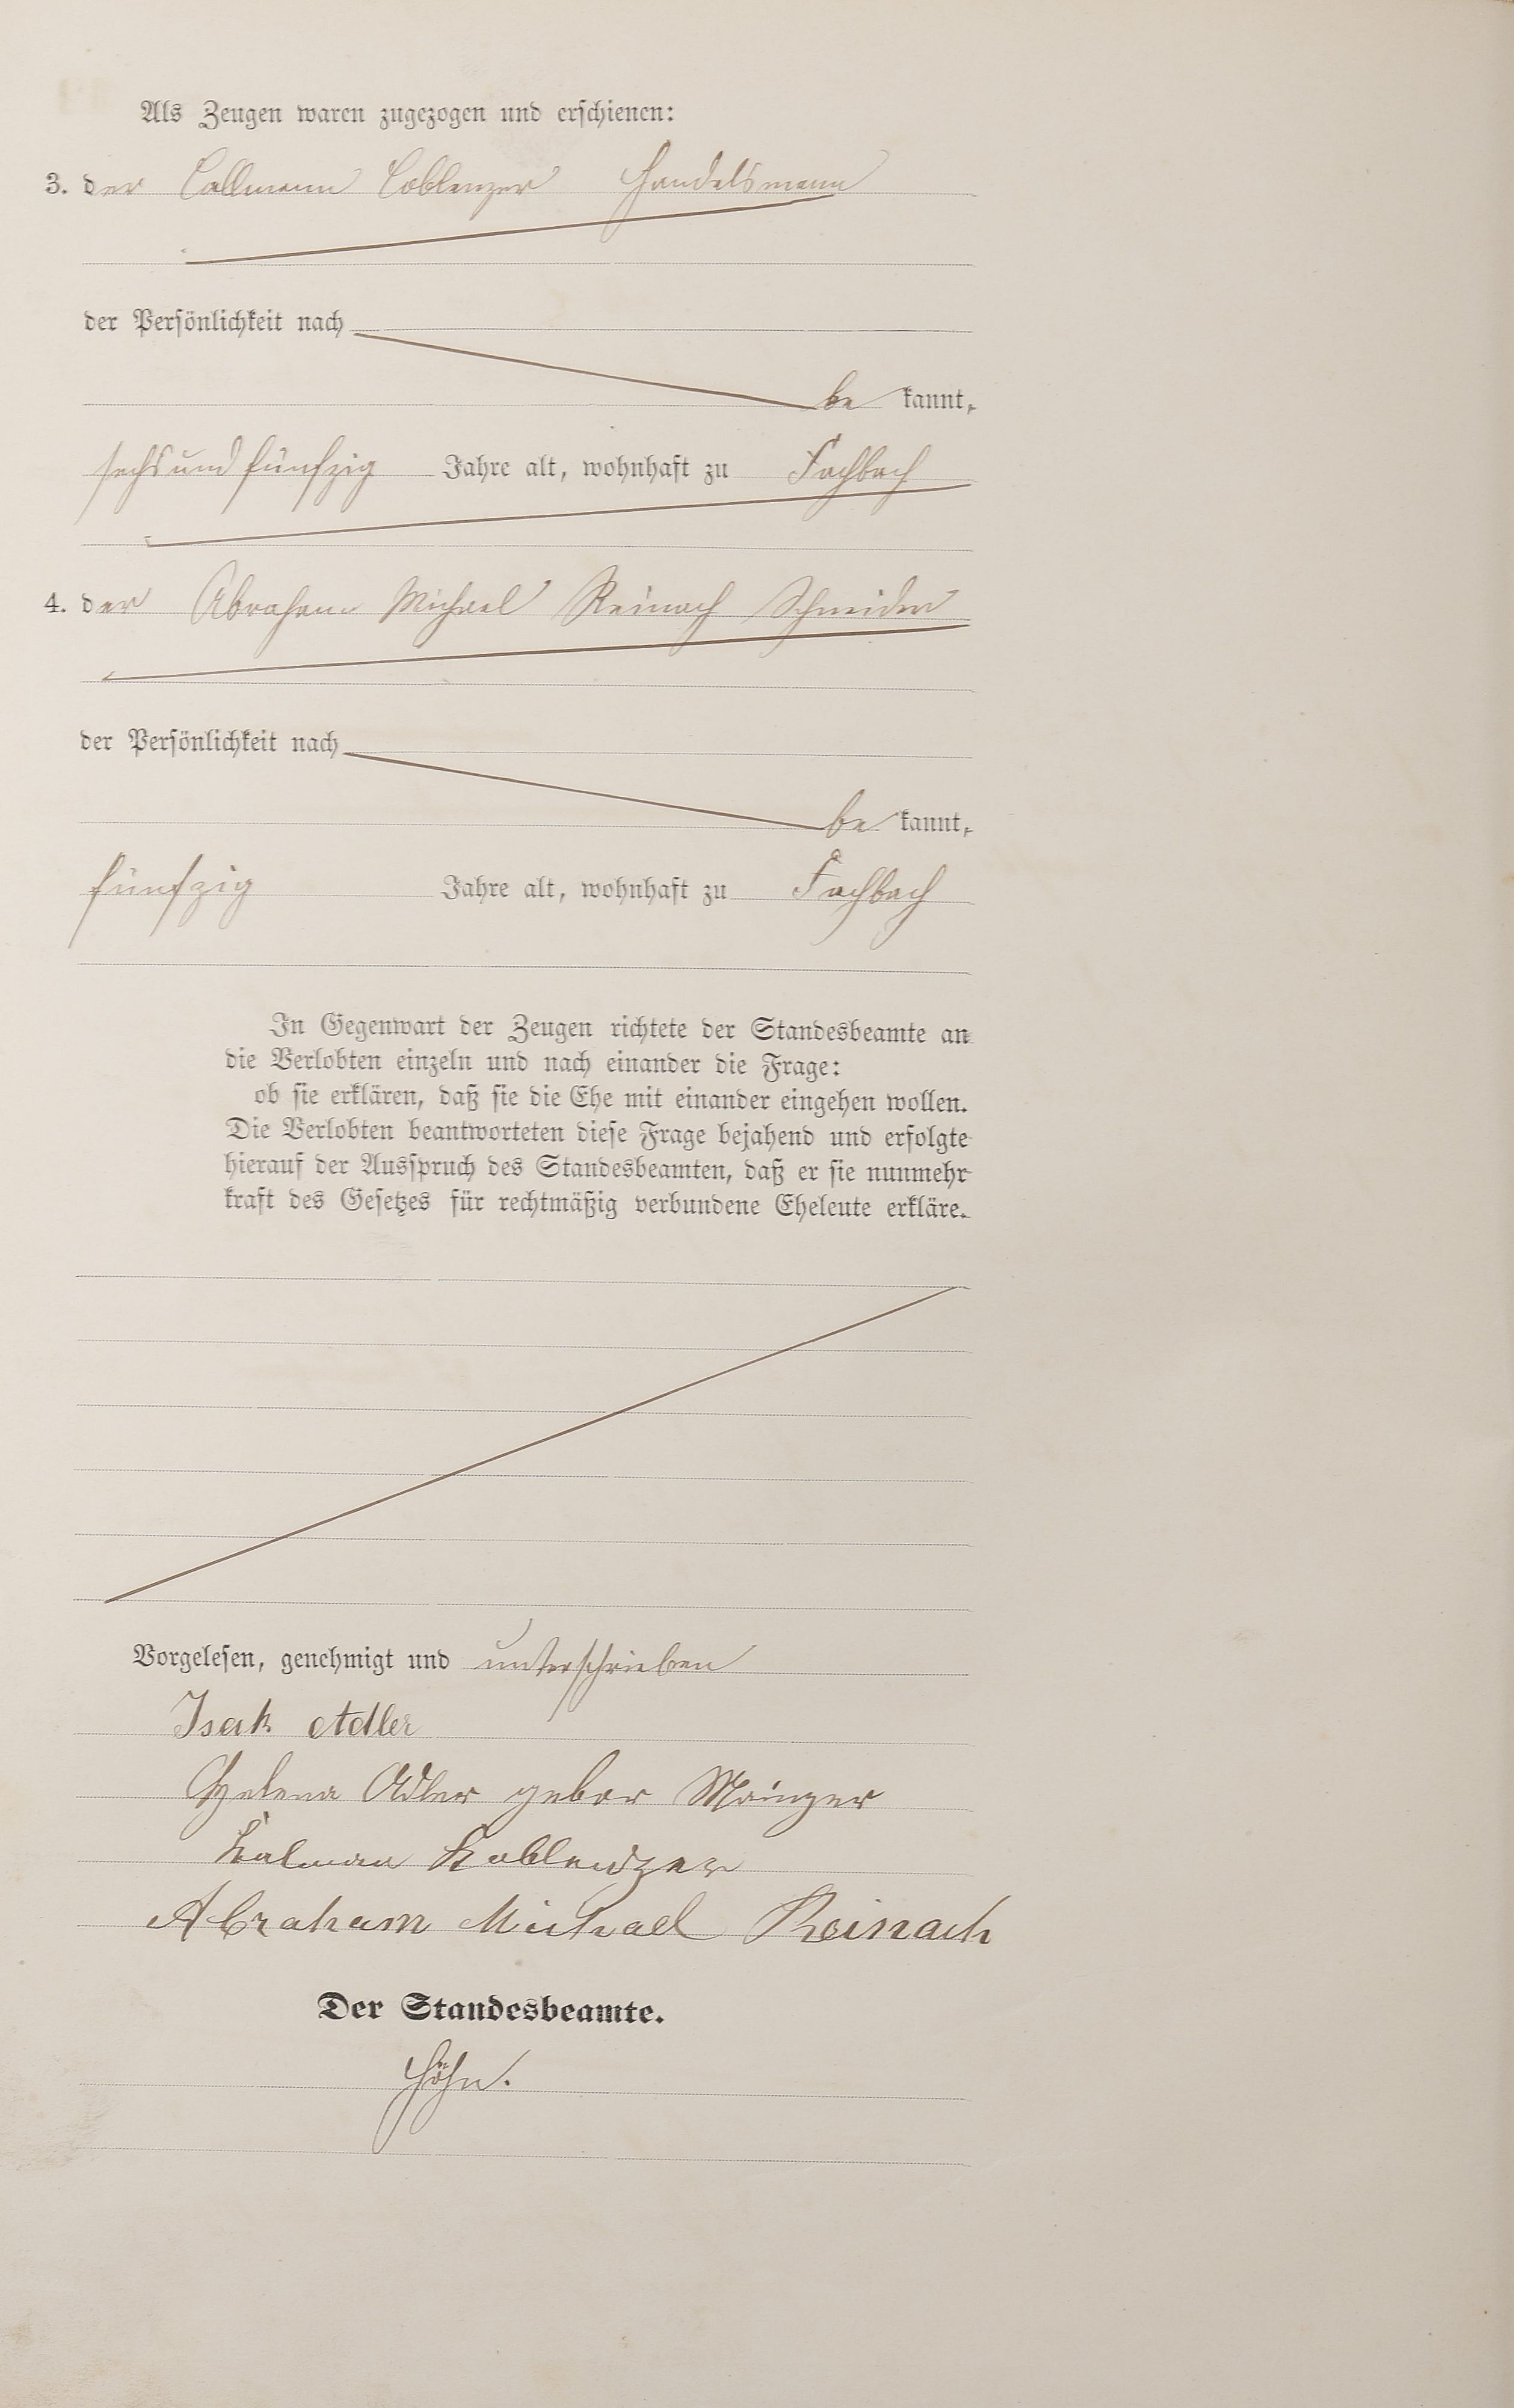 Als Zeugen waren zugezogen und erschienen:
3. der Callmann Coblenzer Handelsmann
der Persönlichkeit nach
be kannt,
sechs und fünfzig Jahre alt, wohnhaft zu Fachbach
4. der Abraham Michael Reinach Schneider
der Persönlichkeit nach
be kannt,
fünfzig Jahre alt, wohnhaft zu Fachbach
In Gegenwart der Zeugen richtete der Standesbeamte an
die Verlobten einzeln und nach einander die Frage:
ob sie erklären, daß sie die Ehe mit einander eingehen wollen.
Die Verlobten beantworteten diese Frage bejahend und erfolgte
hierauf der Ausspruch des Standesbeamten, daß er sie nunmehr
kraft des Gesetzes für rechtmäßig verbundene Eheleute erkläre.
Vorgelesen, genehmigt und unterschrieben
Isak Adler
Helena Adler gebor Mainzer
Kalman Koblenzer
Abraham Michael Reinach
Der Standesbeamte.
Höhn.